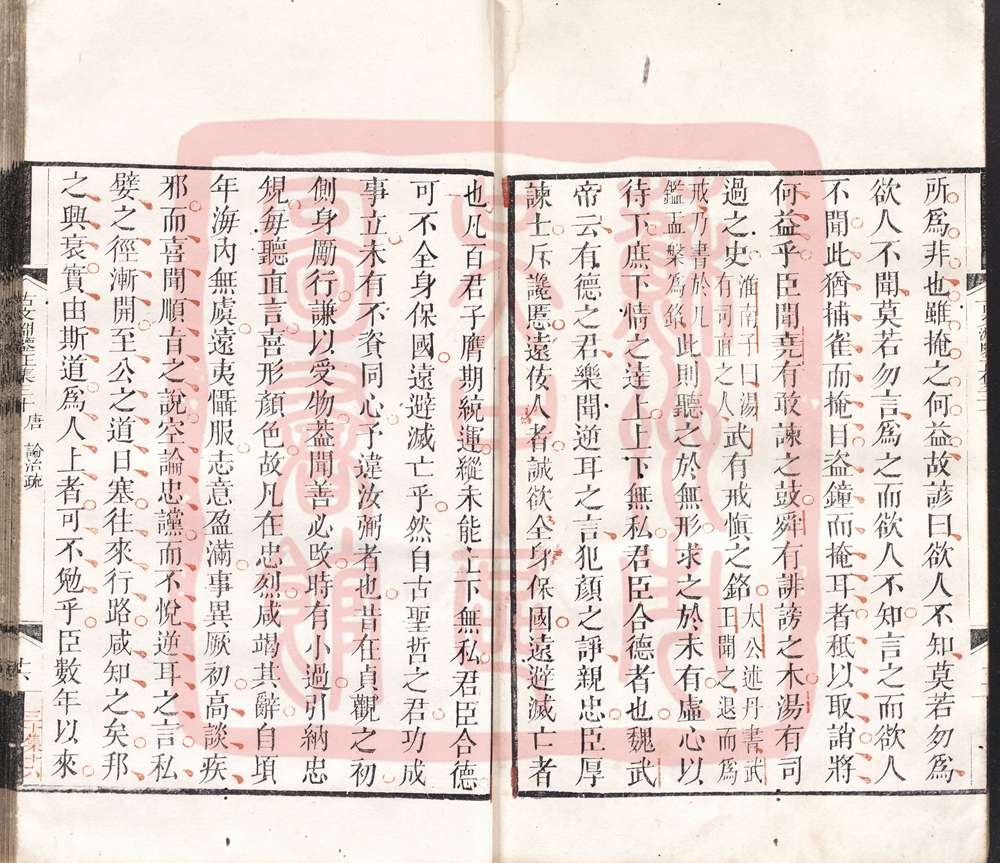 所爲非也雖掩之何益故諺曰欲人不知莫若勿爲
欲人不聞莫若勿言爲之而欲人不知言之而欲人
不聞此猶捕雀而掩目盜鐘而掩耳者秖以取誚將
何益乎臣聞堯有敢諫之鼓舜有誹謗之木湯有司
過之史淮南子曰湯有司直之人武有戒慎之銘太公述丹書武王聞之退而爲
戒乃書於几鑑盂槃爲銘此則聽之於無形求之於未有虛心以
待下庶下情之達上上下無私君臣合德者也魏武
帝云有德之君樂聞逆耳之言犯顏之諍親忠臣厚
諫士斥讒慝遠佞人者誠欲全身保國遠避滅亡者
也凡百君子膺期統運縱未能上下無私君臣合德
可不全身保國遠避滅亡乎然自古聖哲之君功成
事立未有不資同心予違汝弼者也昔在貞觀之初
側身勵行謙以受物蓋聞善必改時有小過引納忠
規每聽直言喜形顏色故凡在忠烈咸竭其辭自頃
年海內無虞遠夷懾服志意盈滿事異厥初高談疾
邪而喜聞順旨之說空論忠讜而不悅逆耳之言私
嬖之徑漸開至公之道日塞往來行路咸知之矣邦
之興衰實由斯道爲人上者可不勉乎臣數年以來
唐 論治疏